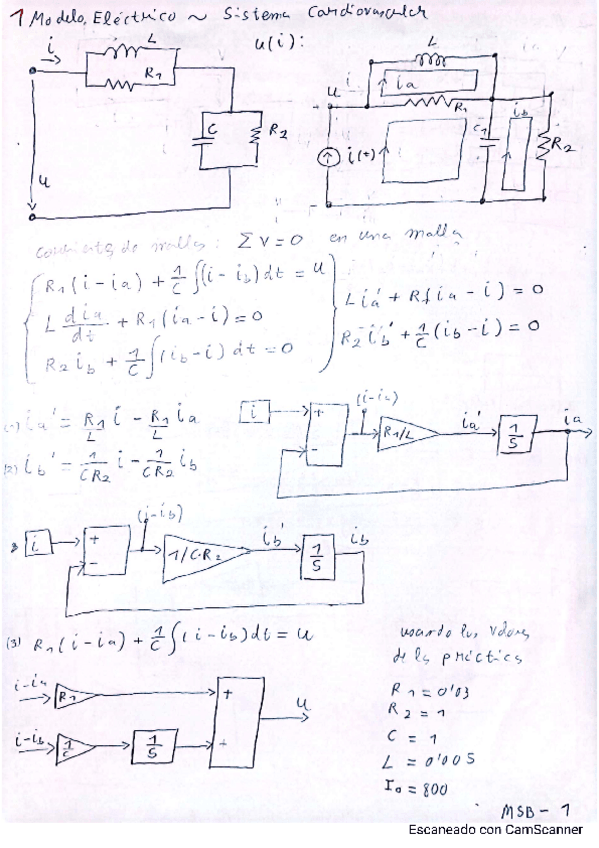 1 Modelo Eléctrico ~ Sistema Cardiovascular
i
L
R1
u(i):
C
R2
u
L
i
ia
u
R1
i(t)
C1
ib
R2
corrientes de mallas: ΣV=0 en una malla
R1(i-ia) + 1/C ∫(i-ib)dt = u
L dia/dt + R1(ia-i)=0
R2 ib + 1/C ∫(ib-i) dt=0
L ia' + R1(ia-i) = 0
R2 ib' + 1/C (ib-i) = 0
(1) ia' = R1/L i - R1/L ia
(2) ib' = 1/CR2 i - 1/CR2 ib
i
+
-
(i-ia)
R1/L
ia'
1/S
ia
i
+
-
(i-ib)
1/C·R2
ib'
1/S
ib
(3) R1(i-ia) + 1/C ∫(i-ib)dt = u
i-ia
R1
+
u
i-ib
1/C
1/S
+
usando los valores
de la práctica
R1 = 0'03
R2 = 1
C = 1
L = 0'005
I0 = 800
MSB-1
Escaneado con CamScanner